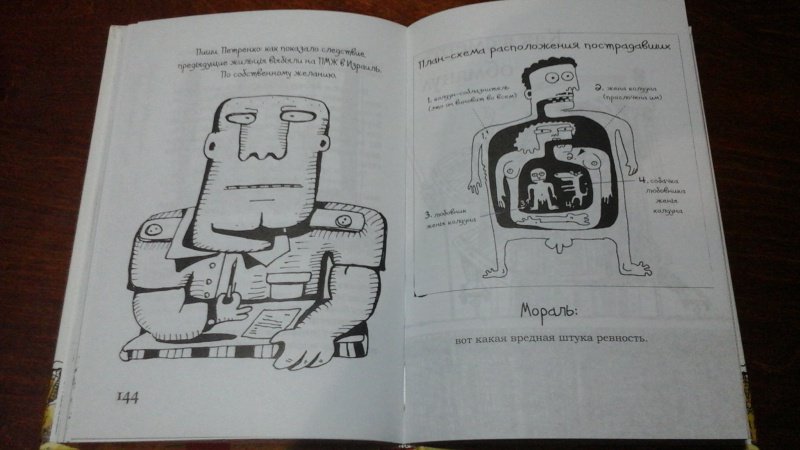 Пиши Петренко: как показало следствие,
предыдущие жильцы выбыли на ПМЖ в Израиль.
По собственному желанию.
144
План-схема расположения пострадавших
1. колдун-соблазнитель
(это он виноват во всем)
2. жена колдуна
(проглочена им)
3. любовник
жены колдуна
4. собачка
любовника
жены
колдуна
Мораль:
вот какая вредная штука ревность.